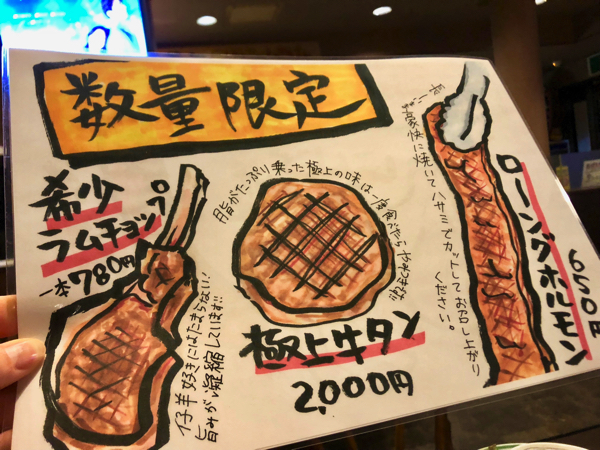 数量限定
希少
ラムチョップ
一本780円
仔羊好きにはたまらない!
旨みが凝縮しています!!
脂がたっぷり乗った極上の味は
極上牛タン
2,000円
豪快に焼いてハサミでカットしてお召し上がり
ください。
ロングホルモン
650円